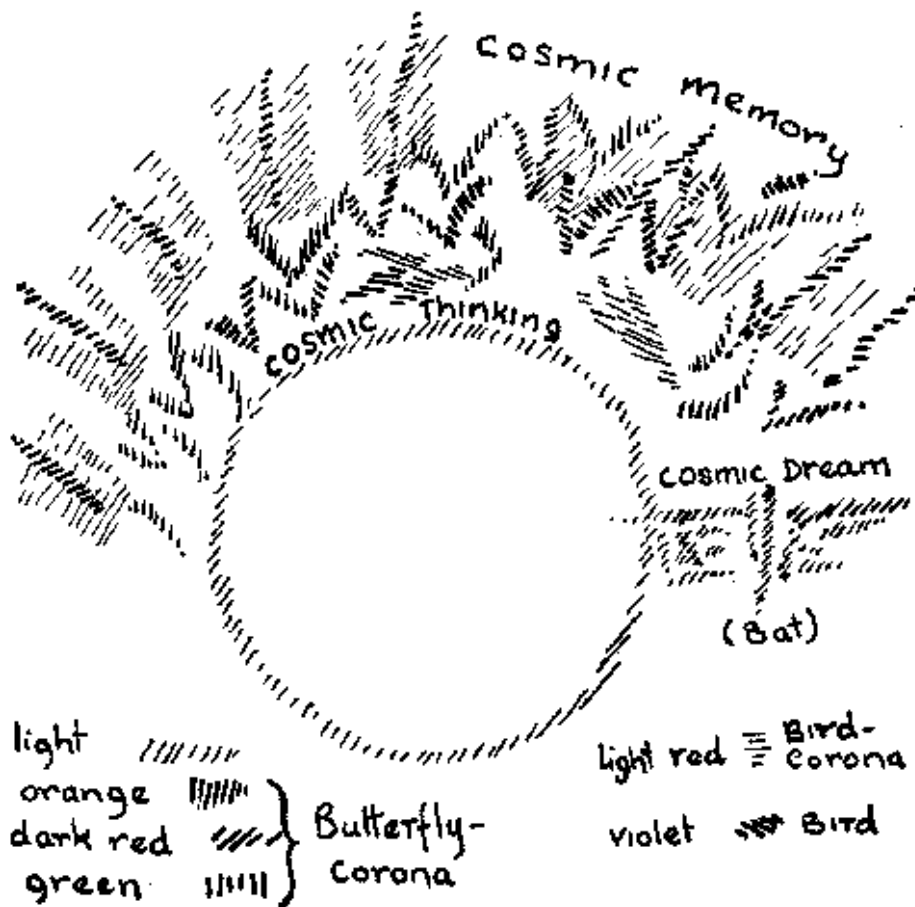 Cosmic Memory
Cosmic Thinking
Cosmic Dream
(Bat)
light
orange
dark red
green
Butterfly-
Corona
light red Bird-
Corona
violet Bird